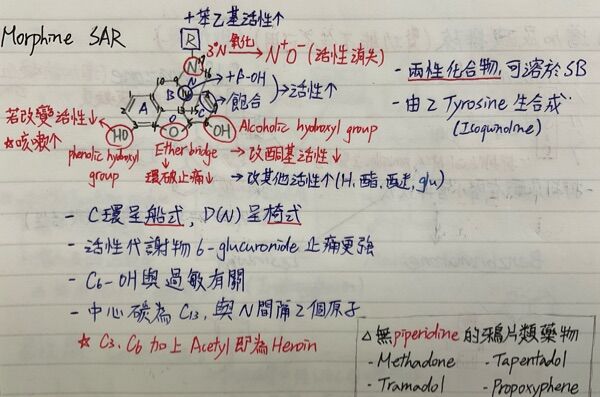 +苯乙基活性↑
Morphine SAR
R
3°N 氧化→ N⁺O⁻ (活性消失)
N
- 兩性化合物, 可溶於SB
+β-OH
飽合 →活性↑
- 由 2 Tyrosine 生合成
(Isoquinoline)
A B C
若改變活性↓
☆咳嗽↑
HO O OH
Alcoholic hydroxyl group
phenolic hydroxyl group
Ether bridge
→改酮基活性↓
環破止痛↓
→改其他活性↑(H, 酯, 醚, glu)
- C環呈船式, D(N)呈椅式
- 活性代謝物 6-glucuronide 止痛更強
- C6-OH與過敏有關
- 中心碳為 C13, 與N間隔2個原子
☆ C3, C6 加上 Acetyl 即為 Heroin
△無piperidine的鴉片類藥物
- Methadone - Tapentadol
- Tramadol - Propoxyphene